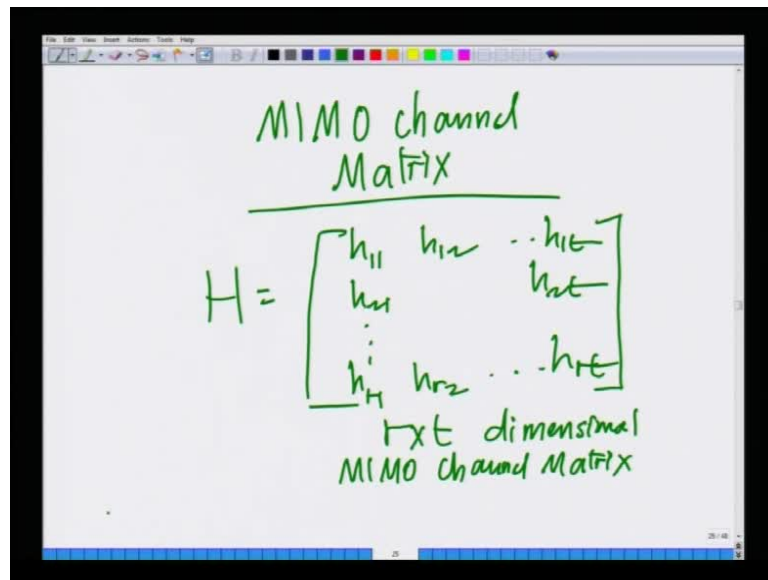 File Edit View Insert Actions Tools Help
MIMO channel
Matrix
H = [ h11 h12 .. h1t
h21 h2t
⋮
hr1 hr2 ... hrt ]
r x t dimensional
MIMO channel Matrix
25